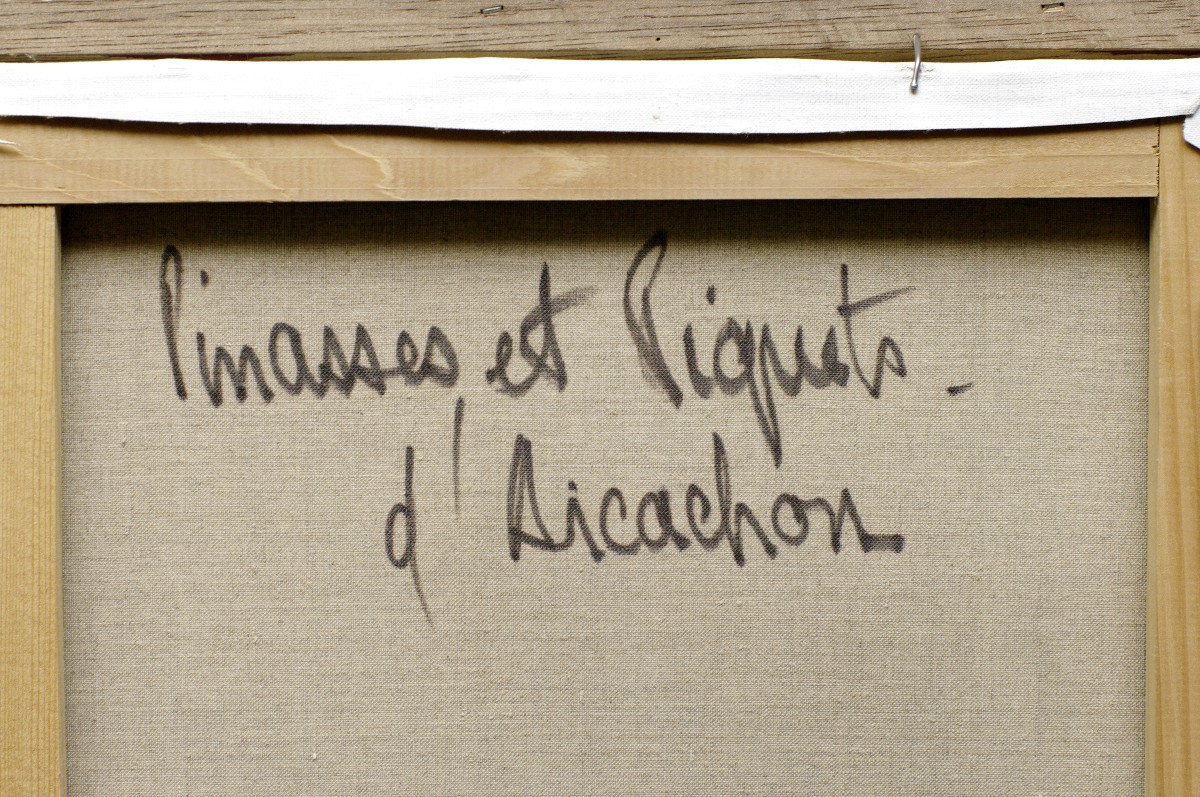 Pinasses et Piquets -
d'Arcachon